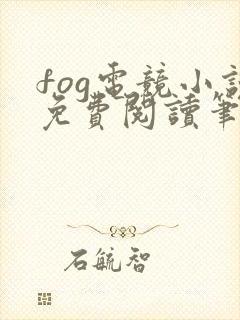 fog電競小說
免費閱讀筆
石毓智